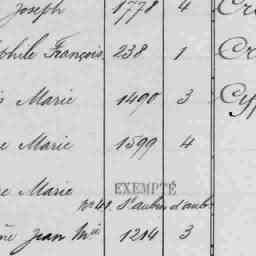 Joseph 1778 4
phile François. 238. 1
Marie 1490 3
Marie 1599 4
Marie EXEMPTÉ
St aubin d'aub
Jean Mie 1214 3